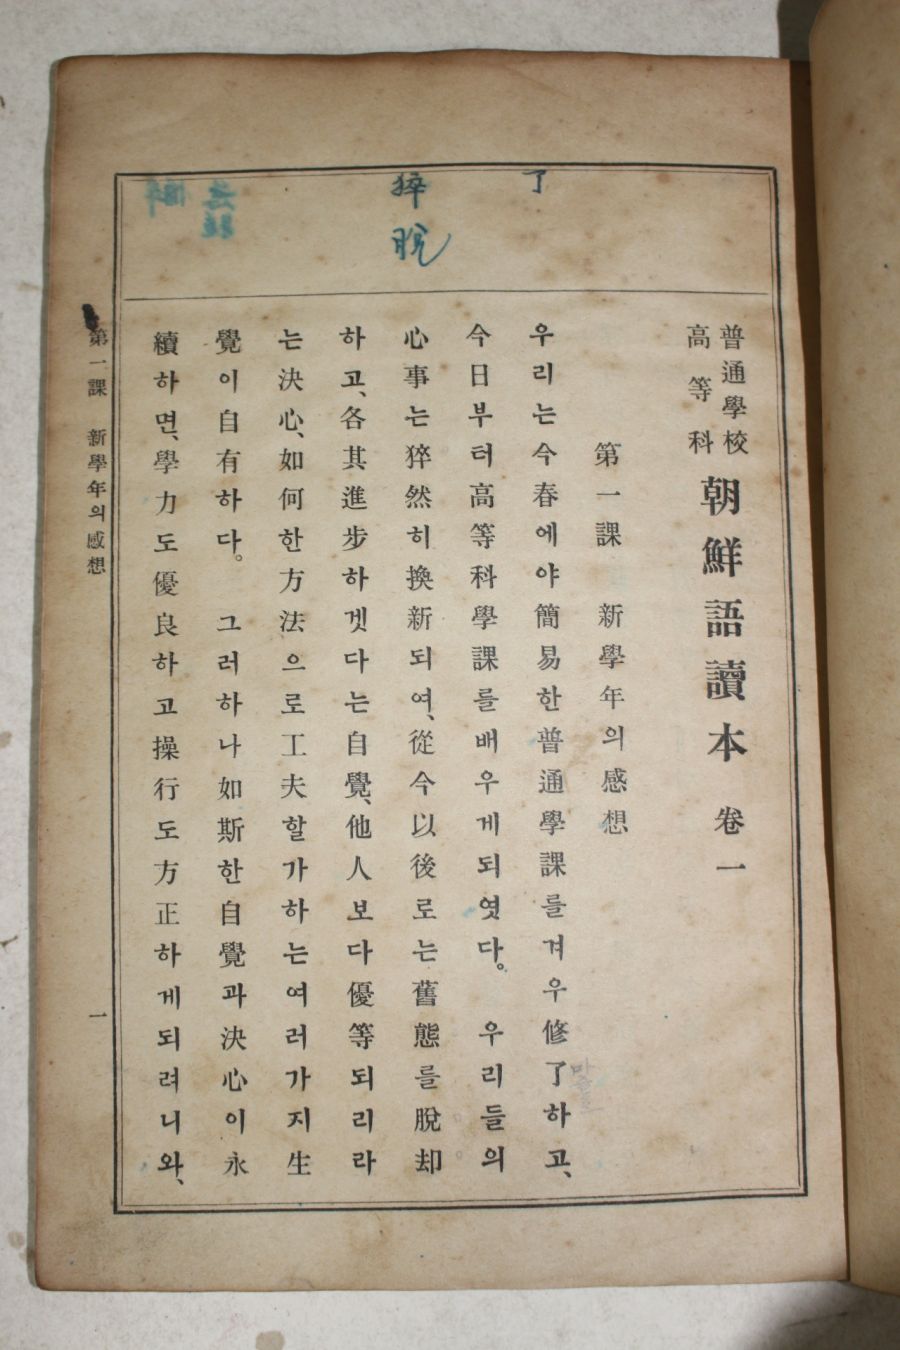 普通學校
高等科
朝鮮語讀本 卷一
第一課 新學年의感想
우리는今春에야簡易한普通學課를겨우修了하고、
今日부터高等科學課를배우게되엿다。 우리들의
心事는猝然히換新되여、從今以後로는舊態를脫却
하고、各其進步하겟다는自覺、他人보다優等되리라
는決心、如何한方法으로工夫할가하는여러가지生
覺이自有하다。 그러하나如斯한自覺과決心이永
續하면、學力도優良하고操行도方正하게되려니와、
了
猝
脫
第一課 新學年의感想
一